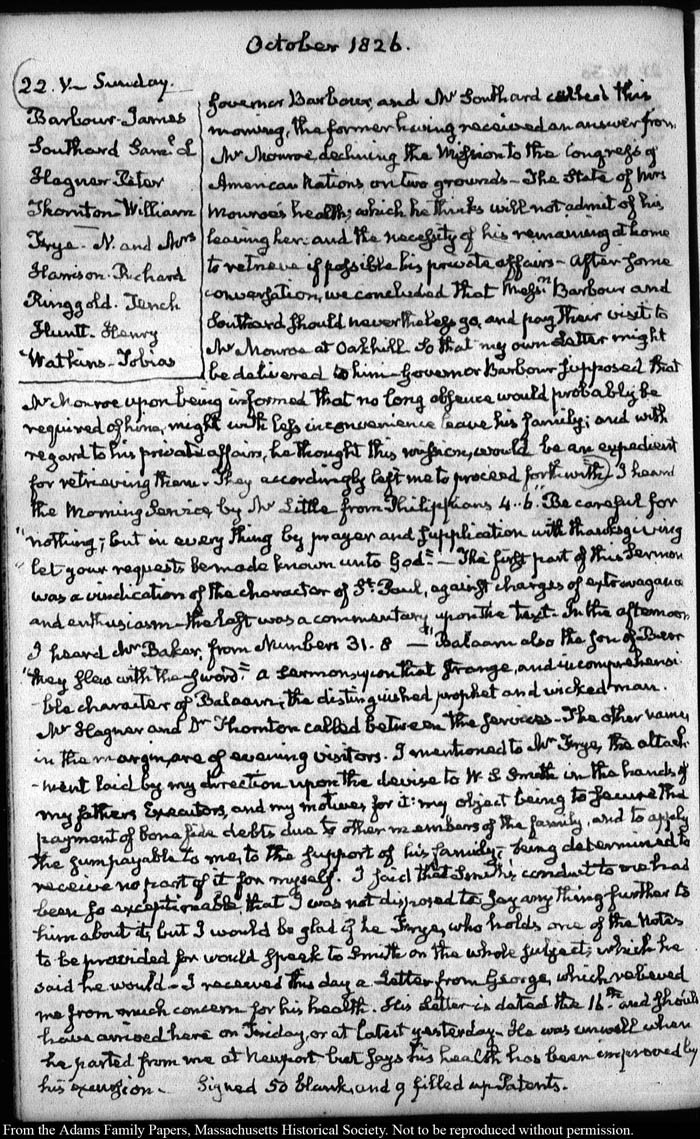 October 1826.
22. V— Sunday.
Barbour. James
Southard Saml. L
Hagner Peter
Thornton William
Frye. N. and Mrs
Harrison. Richard
Ringgold. Tench
Huntt. Henry
Watkins. Tobias
Governor Barbour, and Mr Southard called this
morning, the former having received an answer from
Mr Monroe declining the Mission to the Congress of
American Nations on two grounds— The State of Mrs
Monroe's health; which he thinks will not admit of his
leaving her: and the necessity of his remaining at home
to retrieve if possible his private affairs— After some
conversation, we concluded that Messrs Barbour and
Southard should nevertheless go, and pay their visit to
Mr Monroe at Oakhill so that my own Letter might
be delivered to him— Governor Barbour supposed that
Mr Monroe upon being informed that no long absence would probably be
required of him, might with less inconvenience leave his family; and with
regard to his private affairs, he thought this mission, would be an expedient
for retrieving them. They accordingly left me to proceed forthwith. I heard
the Morning Service by Mr Little from Philippians 4..6 "Be careful for
"nothing; but in every thing by prayer and supplication with thanksgiving
"let your requests be made known unto God"— The first part of this Sermon
was a vindication of the character of St. Paul, against charges of extravagance
and enthusiasm— the last was a commentary upon the text. In the afternoon
I heard Mr Baker, from Numbers 31. 8 — "Balaam also the son of Beor
"they slew with the sword" a sermon upon that strange, and incomprehensi-
-ble character of Balaam; the distinguished prophet and wicked man.
Mr Hagner and Dr Thornton called between the services— The other names
in the margin, are of evening visitors. I mentioned to Mr Frye, the attach-
-ment laid by my direction upon the devise to W. S. Smith in the hands of
my fathers Executors, and my motives for it: my object being to secure the
payment of bona fide debts due to other members of the family, and to apply
the sum payable to me, to the support of his family; being determined to
receive no part of it for myself. I said that Smith's conduct to me had
been so exceptionable that I was not disposed to say any thing further to
him about it, but I would be glad if he Frye, who holds one of the Notes
to be provided for would speak to Smith on the whole subject; which he
said he would— I received this day a Letter from George, which relieved
me from much concern for his health. His Letter is dated the 16th. and should
have arrived here on Friday, or at latest yesterday— He was unwell when
he parted from me at Newport but says his health has been improved by
his excursion. Signed 50 blank, and 9 filled up Patents.
From the Adams Family Papers, Massachusetts Historical Society. Not to be reproduced without permission.